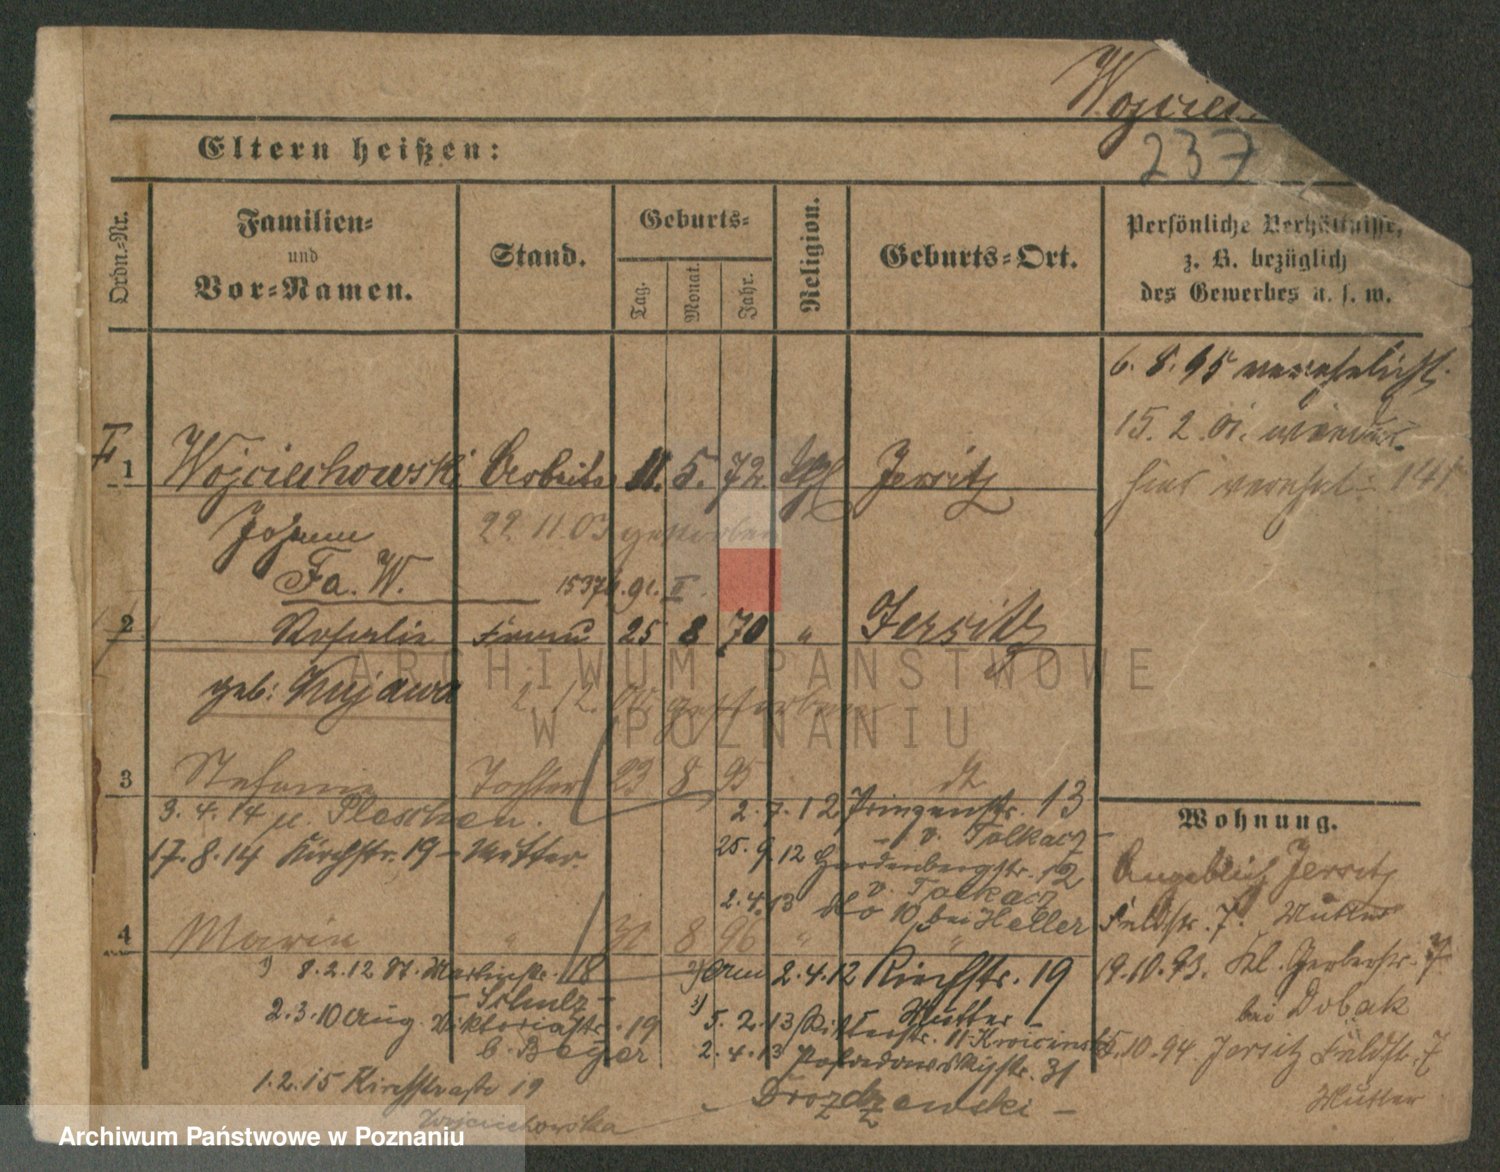 237
Eltern heißen:
Ordn.-Nr.
Familien- und Vor-Namen.
Stand.
Geburts-
Tag.
Monat.
Jahr.
Religion.
Geburts-Ort.
Persönliche Verhältnisse,
z. B. bezüglich
des Gewerbes u. s. w.
6. 8. 95 verehelicht.
15. 2. 01. wieder
hier verehel. 141
1 Wojciechowski Arbeiter 11. 5. 72. Jersitz
Johann 22. 11. 03 gestorben
Fa. W.
2 Rosalie Frau 25 8 70 " Jersitz
geb: Kujawa 2. 12. 00. gestorben
3 Stefania Tochter 23 8 95 dt
3. 4. 14 n. Pleschen. 2. 7. 12 Prinzenstr. 13
v. Talkacz
17. 8. 14 Kirchstr. 19 - Mutter. 25. 9. 12 Hardenbergstr. 12
v. Talkacz
2. 4. 13 do 10 bei Heller
4 Maria " 30 8 96 " "
1) 8. 2. 12 St. Martinstr. 18 2) am 2. 4. 12 Kirchstr. 19
- Schulz - Mutter -
2. 3. 10 Aug. Viktoriastr. 19 3) 5. 2. 13 Ritterstr. 11
b. Beyer 2. 4. 13 Posadowskystr. 31
1. 2. 15 Kirchstraße 19 Drozdzewski -
Wojciechowska
Wohnung.
Angeblich Jersitz
Feldstr. 7. Mutter
19. 10. 93. Kl. Gerberstr. 7
bei Dobak
5. 10. 94. Jersitz Feldstr. 7
Mutter
ARCHIWUM PAŃSTWOWE
W POZNANIU
Archiwum Państwowe w Poznaniu